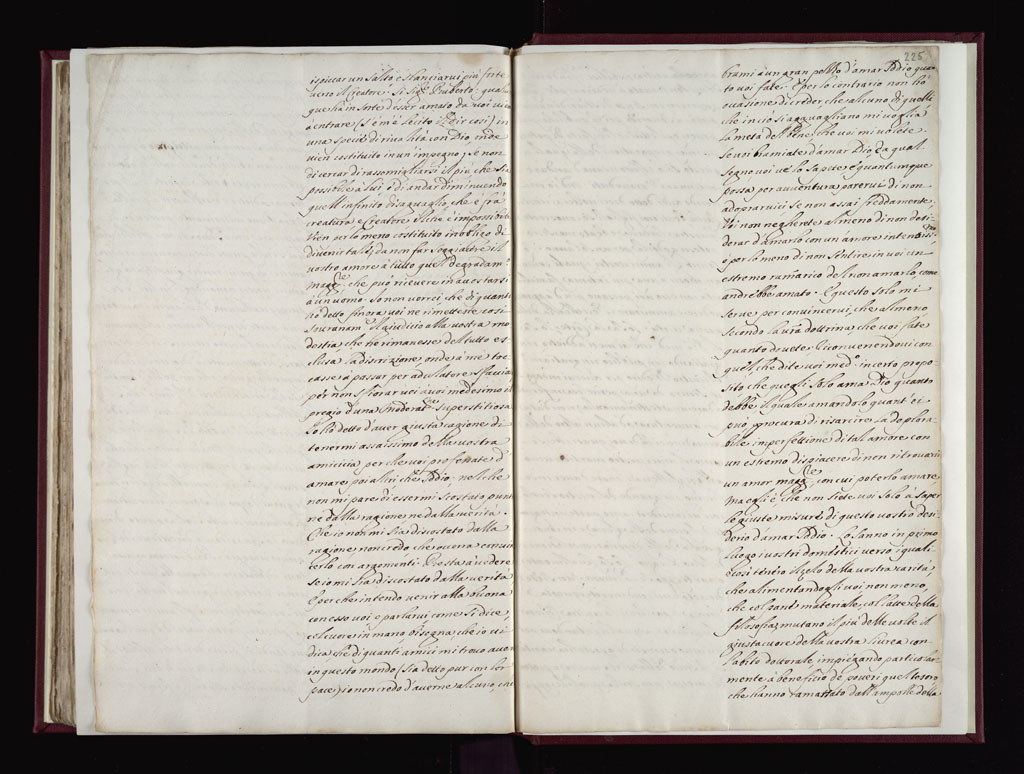 ispiccar un salto e slanciarui più forte
uerso il Creatore. Si Sig.r Ruberto: qualun
que sia in sorte d'esser amato da voi vien
à entrare (se m'è lecito il dir così) in
una specie di riualità con Dio, onde
vien costituito in un impegno, se non
di cercar di rassomigliarsi il più che sia
possibile à lui, ò di andar diminuendo
quell'infinito disaguaglio, che è frà
creatura e Creatore. Il che è impossibile
vien per lo meno costituito in obligo di
divenir tale, da non far soggiacere il
vostro amore à tutto quel degradam.to
magg.re che può riceuere in auostarsi
à un uomo. Io non vorrei, che di quanto
hò detto finora voi ne rimetteste così
souranam.te il giudicio alla vostra mo
destia, che ne rimanesse del tutto es
clusa la discrizione, onde à me toc
casse à passar per adulatore, e faccia
per non isfiorar uei à voi medesimo il
pregio d'una moderat.ne superstitiosa.
Io hò detto d'auer giusta cagione di
tenermi assaissimo della vostra
amicizia, perche voi professate d'
amare poi altri che Iddio: nel che
non mi pare di essermi scostato punto
ne dalla ragione ne dalla verità.
Che io non mi sia discostato dalla
ragione, non credo che occorra conuin
cerlo con argomenti. Resta à uedere
se io mi sia discostato dalla uerità.
E perche intendo venir alla buona
con esso voi, e parlarui, come si dice,
col cuore in mano, bisogna, che io vi
dica che di quanti amici mi trouo auer
in questo mondo (sia detto pur con lor
pace) io non credo d'auerne alcuno, che
225
brami à un gran pezzo d'amar Iddio quan
to voi fate. E per lo contrario non hò
occasione di creder, che alcuno di quelli
che in ciò si agguagliano mi voglia
la metà del bene, che voi mi volete.
Se voi bramiate d'amar Dio, e à qual
segno voi ue lo sapete: e quantunque
possa per auuentura pareruì di non
adoprarui ci se non assai freddamente,
voi non negherete almeno di non desi
derar d'amarlo con un amore intensiss.mo
ò per lo meno di non sentire in voi un
estremo ramarico del non amarlo, come
andrebbe amato. E questo solo mi
serue per conuincerui, che almeno
secondo la urã dottrina, che voi fate
quanto douete, e conuenendoui con
quel, che dite voi med.o in certo propo
sito che quegli solo ama Dio quanto
debbe, il quale amandolo quant'ei
può, procura di risarcire la deplora
bile imperfettione di tal amore con
un estremo dispiacere di non ritrouarsi
un amor magg.re con cui poterlo amare
ma egli è, che non siete voi solo à saper
le giuste misure di questo vostro desi
derio d'amar Iddio. Lo sanno in primo
luogo i vostri domestici verso i quali
è così tenero il zelo della vostra carità,
che alimentandogli voi non meno
che col pane materiale, col latte della
filosofia; mutano il più delle volte il
giustacuore della vostra liurea con
l'abito dottorale, impiegando particolar
mente à beneficio de' poueri quel tesoro
che hanno ramassato dall'ampolle della